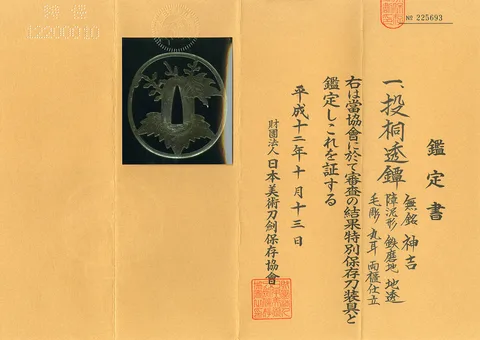 鑑定書
一、投桐透鐔
無銘 神吉
障泥形 鉄磨地 地透
毛彫 丸耳 両櫃仕立
右は當協會に於て審査の結果特別保存刀装具と
鑑定しこれを証する
平成十二年十月十三日
財團法人 日本美術刀剣保存協會
№ 225693
12200010